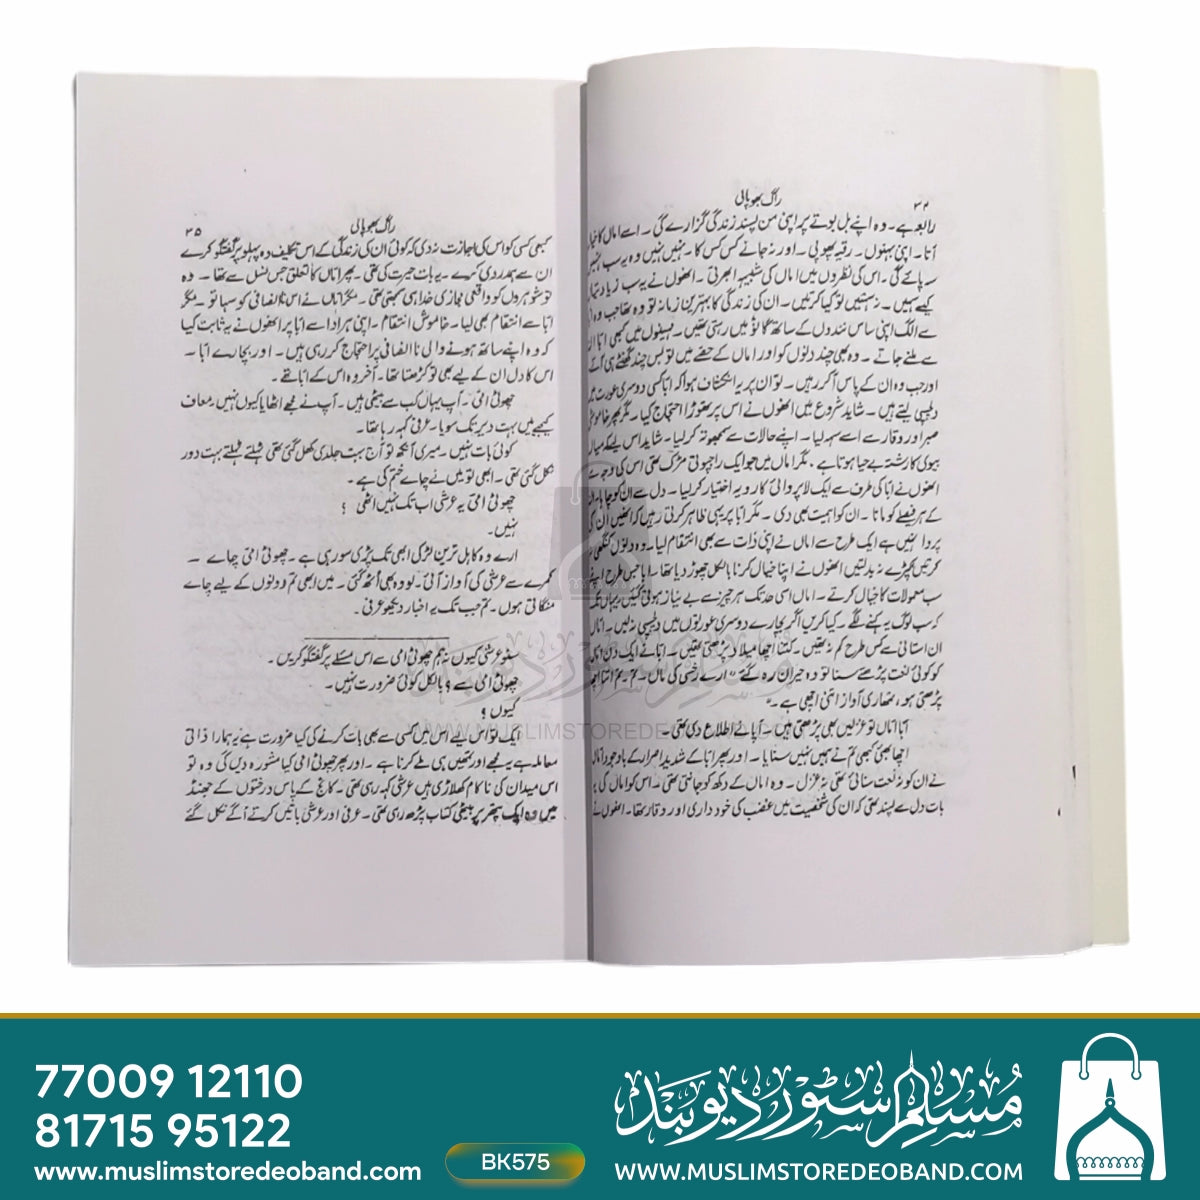 ۳۴
راگ بھوپالی
رابعہ ہے۔ وہ اپنے بل بوتے پر اپنی من پسند زندگی گزارے گی۔ اسے اماں کا خیال
آتا۔ اپنی بہنوں۔ رقیہ پھوپی۔ اور نہ جانے کس کس کا۔ نہیں نہیں وہ یہ سب نہیں
سہہ پائے گی۔ اس کی نظروں میں اماں کی شبیہہ ابھرتی۔ انھوں نے یہ سب
کیسے سہیں۔ نہ سہتیں تو کیا کرتیں۔ ان کی زندگی کا بہترین زمانہ تو وہ تھا جب وہ ابا
سے الگ اپنی ساس نندوں کے ساتھ گاؤں میں رہتی تھیں۔ مہینوں میں کبھی ابا ان
سے ملنے جاتے۔ وہ بھی چند دنوں کو اور اماں کے حصے میں تو بس چند گھنٹے ہی آتے
اور جب وہ ان کے پاس آ کر رہیں۔ تو ان پر یہ انکشاف ہوا کہ ابا کسی دوسری عورت میں
دلچسپی لیتے ہیں۔ شاید شروع میں انھوں نے اس پر تھوڑا احتجاج کیا۔ مگر پھر خاموشی
صبر اور وقار سے اسے سہہ لیا۔ اپنے حالات سے سمجھوتہ کر لیا۔ شاید اس لیے کہ میاں
بیوی کا رشتہ بے حیا ہوتا ہے، مگر اماں میں جو ایک راجپوتی مڑک تھی اس کی وجہ سے
انھوں نے ابا کی طرف سے ایک لا پروائی کا رویہ اختیار کر لیا۔ دل سے ان کو چاہا۔ ان
کے ہر فیصلے کو مانا۔ ان کو اہمیت بھی دی۔ مگر ابا پر یہی ظاہر کرتی رہیں کہ انھیں ان کی
پروا نہیں ہے ایک طرح سے اماں نے اپنی ذات سے بھی انتقام لیا۔ وہ دنوں کنگھی نہ
کرتیں کپڑے نہ بدلتیں انھوں نے اپنا خیال کرنا بالکل چھوڑ دیا تھا۔ ابا جس طرح اپنے
سب معمولات کا خیال کرتے۔ اماں اسی حد تک ہر چیز سے بے نیاز ہوتی گئیں یہاں تک
کہ سب لوگ یہ کہنے لگے۔ کیا کریں اگر بچارے دوسری عورتوں میں دلچسپی نہ لیں۔ اماں
ان استانی سے کس طرح کم نہ تھیں۔ کتنا اچھا میلاد پڑھتی تھیں۔ ابا نے ایک دن اماں
کو کوئی نعت پڑھتے سنا تو وہ حیران رہ گئے "ارے رضی کی ماں۔ تم یہ اتنا اچھا
پڑھتی ہو، تمھاری آواز اتنی اچھی ہے۔"
ابا اماں تو غزلیں بھی پڑھتی ہیں۔ آپا نے اطلاع دی تھی۔
اچھا بھئی کبھی تم نے ہمیں نہیں سنایا۔ اور پھر ابا کے شدید اصرار کے باوجود اماں
نے ان کو نہ نعت سنائی تھی نہ غزل۔ وہ اماں کے دکھ کو جانتی تھی۔ اس کو اماں کی یہ
بات دل سے پسند تھی کہ ان کی شخصیت میں غضب کی خود داری اور وقار تھا۔ انھوں نے
۳۵
راگ بھوپالی
کبھی کسی کو اس کی اجازت نہ دی کہ کوئی ان کی زندگی کے اس تکلیف دہ پہلو پر گفتگو کرے
ان سے ہمدردی کرے۔ یہ بات حیرت کی تھی۔ پھر اماں کا تعلق جس نسل سے تھا۔ وہ
تو شوہروں کو واقعی مجازی خدا ہی کہتی تھی۔ مگر اماں نے اس ناانصافی کو سہا تو۔ مگر
ابا سے انتقام بھی لیا۔ خاموش انتقام۔ اپنی ہر ادا سے ابا پر انھوں نے یہ ثابت کیا
کہ وہ اپنے ساتھ ہونے والی ناانصافی پر احتجاج کر رہی ہیں۔ اور بچارے ابا۔
اس کا دل ان کے لیے بھی تو کڑھتا تھا۔ آخر وہ اس کے ابا تھے۔
چھوٹی امی۔ آپ یہاں کب سے بیٹھی ہیں۔ آپ نے مجھے اٹھایا کیوں نہیں۔ معاف
کیجیے میں بہت دیر تک سویا۔ عرفی کہہ رہا تھا۔
کوئی بات نہیں۔ میری آنکھ تو آج بہت جلدی کھل گئی تھی ٹہلتے ٹہلتے بہت دور
نکل گئی تھی۔ ابھی تو میں نے چائے ختم کی ہے۔
چھوٹی امی یہ عرشی اب تک نہیں اٹھی ؟
نہیں۔
ارے وہ کاہل ترین لڑکی ابھی تک پڑی سو رہی ہے۔ چھوٹی امی چائے ۔
کمرے سے عرشی کی آواز آئی۔ لو وہ بھی اٹھ گئی۔ میں ابھی تم دونوں کے لیے چائے
منگاتی ہوں۔ تم جب تک یہ اخبار دیکھو عرفی۔
سنو عرشی کیوں نہ ہم چھوٹی امی سے اس مسئلے پر گفتگو کریں۔
چھوٹی امی سے؟ بالکل کوئی ضرورت نہیں۔
کیوں؟
ایک تو اس لیے اس میں کسی سے بھی بات کرنے کی کیا ضرورت ہے یہ ہمارا ذاتی
معاملہ ہے یہ مجھے اور تمھیں ہی طے کرنا ہے۔ اور پھر چھوٹی امی کیا مشورہ دیں گی وہ تو
اس میدان کی ناکام کھلاڑی ہیں عرشی کہہ رہی تھی۔ کاٹج کے پاس درختوں کے جھنڈ
میں وہ ایک پتھر پر بیٹھی کتاب پڑھ رہی تھی۔ عرفی اور عرشی باتیں کرتے آگے نکل گئے
مسلم سٹور دیوبند
WWW.MUSLIMSTOREDEOBAND.COM
77009 12110
81715 95122
www.muslimstoredeoband.com
BK575
مسلم سٹور دیوبند
WWW.MUSLIMSTOREDEOBAND.COM